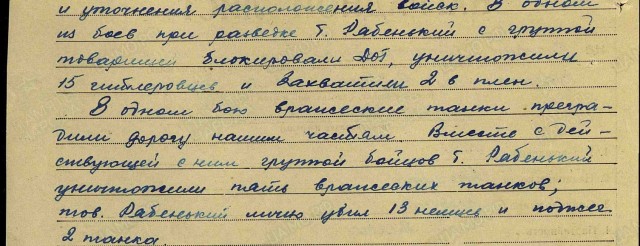 и уточнения расположения войск. В одном
из боев при разведке т. Рабенький с группой
товарищей блокировали ДОТ, уничтожили
15 гитлеровцев и захватили 2 в плен.
В одном бою вражеские танки прегра-
дили дорогу нашим частям. Вместе с дей-
ствующей с ним группой бойцов т. Рабенький
уничтожили пять вражеских танков;
тов. Рабенький лично убил 13 немцев и поджег
2 танка